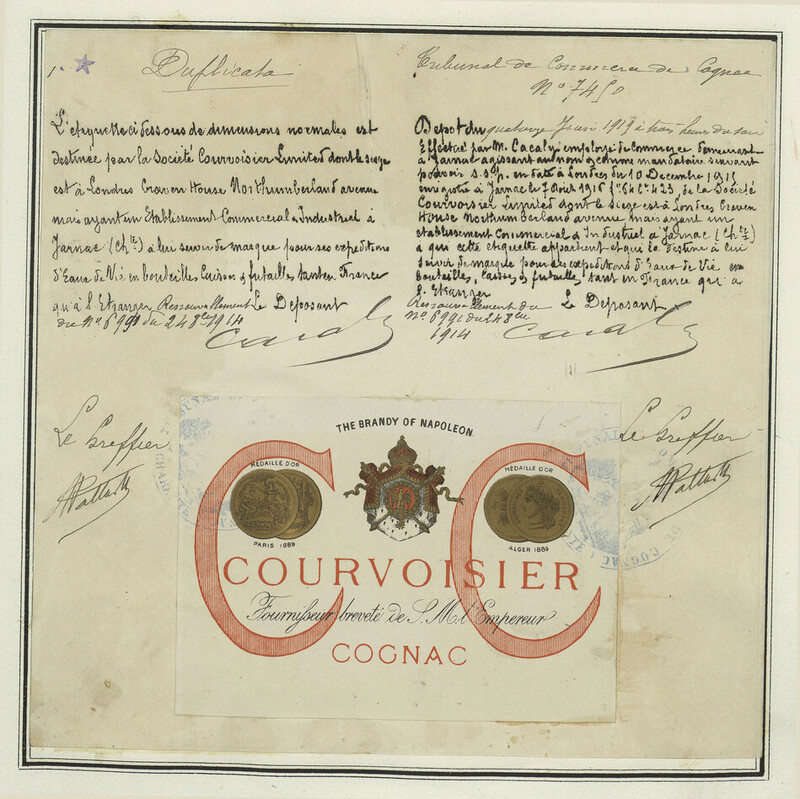 1.
Duplicata
L'etiquette ci dessous de dimensions normales est
destinée par la Société Courvoisier Limited dont le siege
est à Londres Craven House Northumberland avenue
mais ayant un Etablissement Commercial & Industriel à
Jarnac (Chte) à lui servir de marque pour ses expeditions
d'Eaux de Vie en bouteilles Caisses & futailles tant en France
qu'à l'Etranger Renouvellement Le Deposant
du No 6991 du 24 8bre 1914
Cacaly
Tribunal de Commerce de Cognac
No 7450
Depot du quatorze Juin 1919 à trois heures du soir
Effectué par M. Cacaly employé de Commerce demeurant
à Jarnac agissant au nom & comme mandataire suivant
pouvoir s.s.p. en date à Londres du 10 Decembre 1915
enregistré à Jarnac le 7 Aout 1916 fo 64 Co 423, de la Société
Courvoisier Limited dont le Siege est à Londres Craven
House Northumberland avenue mais ayant un
etablissement Commercial & Industriel à Jarnac (Chte)
a qui cette etiquette appartient et qui la destine à lui
servir de marque pour ses expeditions d'Eaux de Vie en
bouteilles, Caisses & futailles tant en France qu'à
l'Etranger
Renouvellement du Le Deposant
No 6991 du 24 8bre
1914
Cacaly
Le Greffier
Le Greffier
THE BRANDY OF NAPOLEON
MÉDAILLE D'OR
PARIS 1889
MÉDAILLE D'OR
ALGER 1889
COURVOISIER
Fournisseur breveté de S. M. l'Empereur
COGNAC